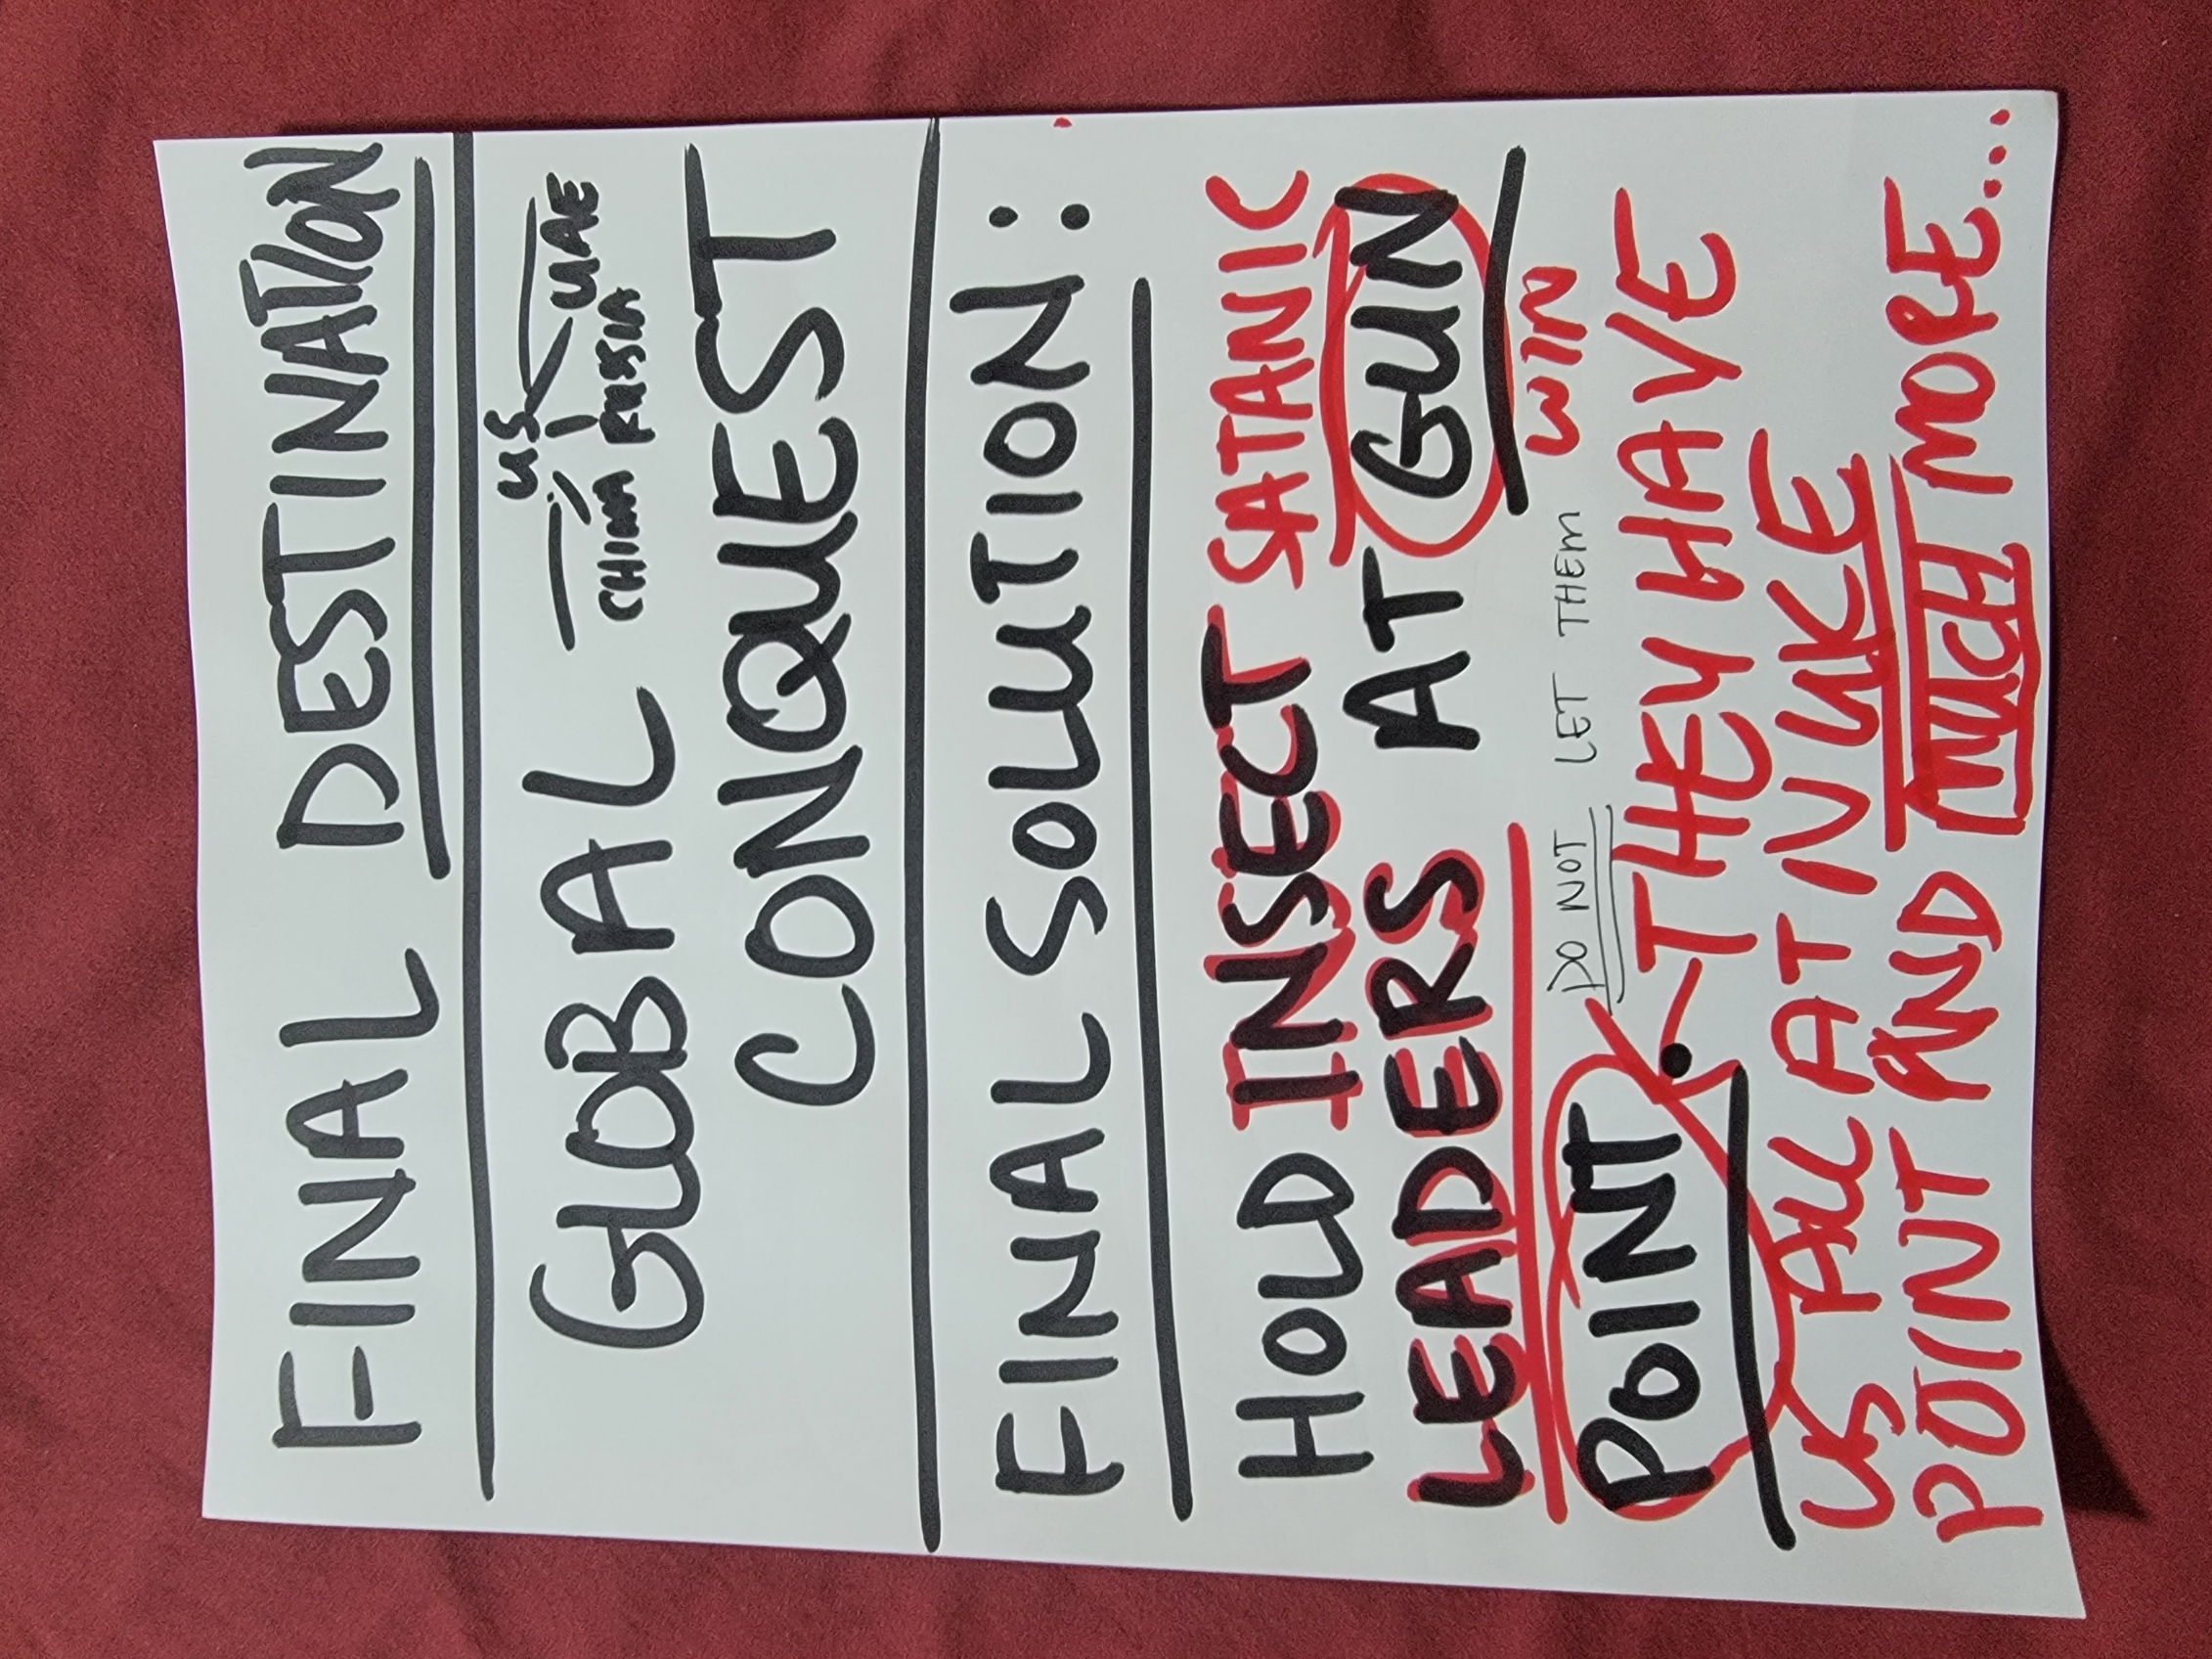 FINAL DESTINATION
GLOBAL
US
CHINA RUSSIA UAE
CONQUEST
FINAL SOLUTION:
HOLD INSECT SATANIC
LEADERS AT GUN
POINT. DO NOT LET THEM WIN
THEY HAVE
US ALL AT NUKE
POINT AND MUCH MORE...